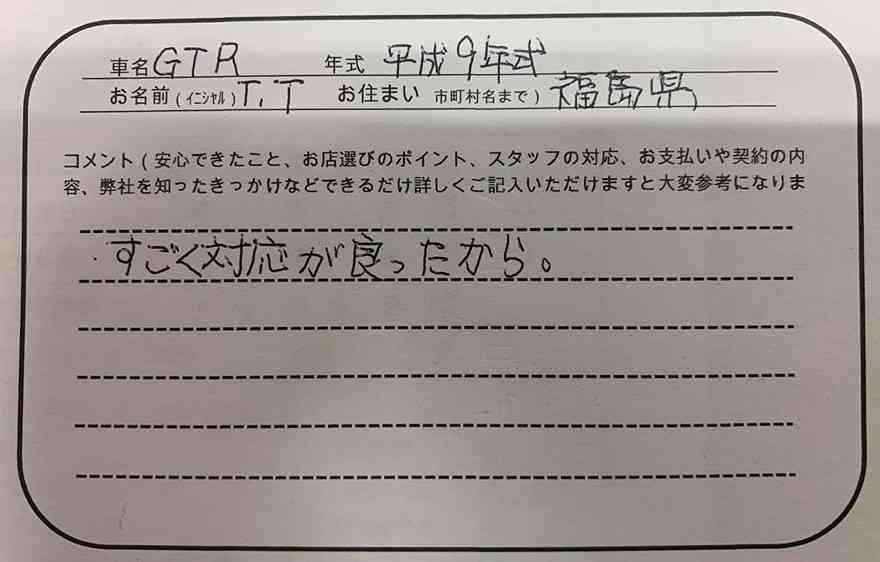 車名 GTR 年式 平成9年式
お名前(イニシャル) T.T お住まい 市町村名まで) 福島県
コメント(安心できたこと、お店選びのポイント、スタッフの対応、お支払いや契約の内
容、弊社を知ったきっかけなどできるだけ詳しくご記入いただけますと大変参考になりま
・すごく対応が良ったから。